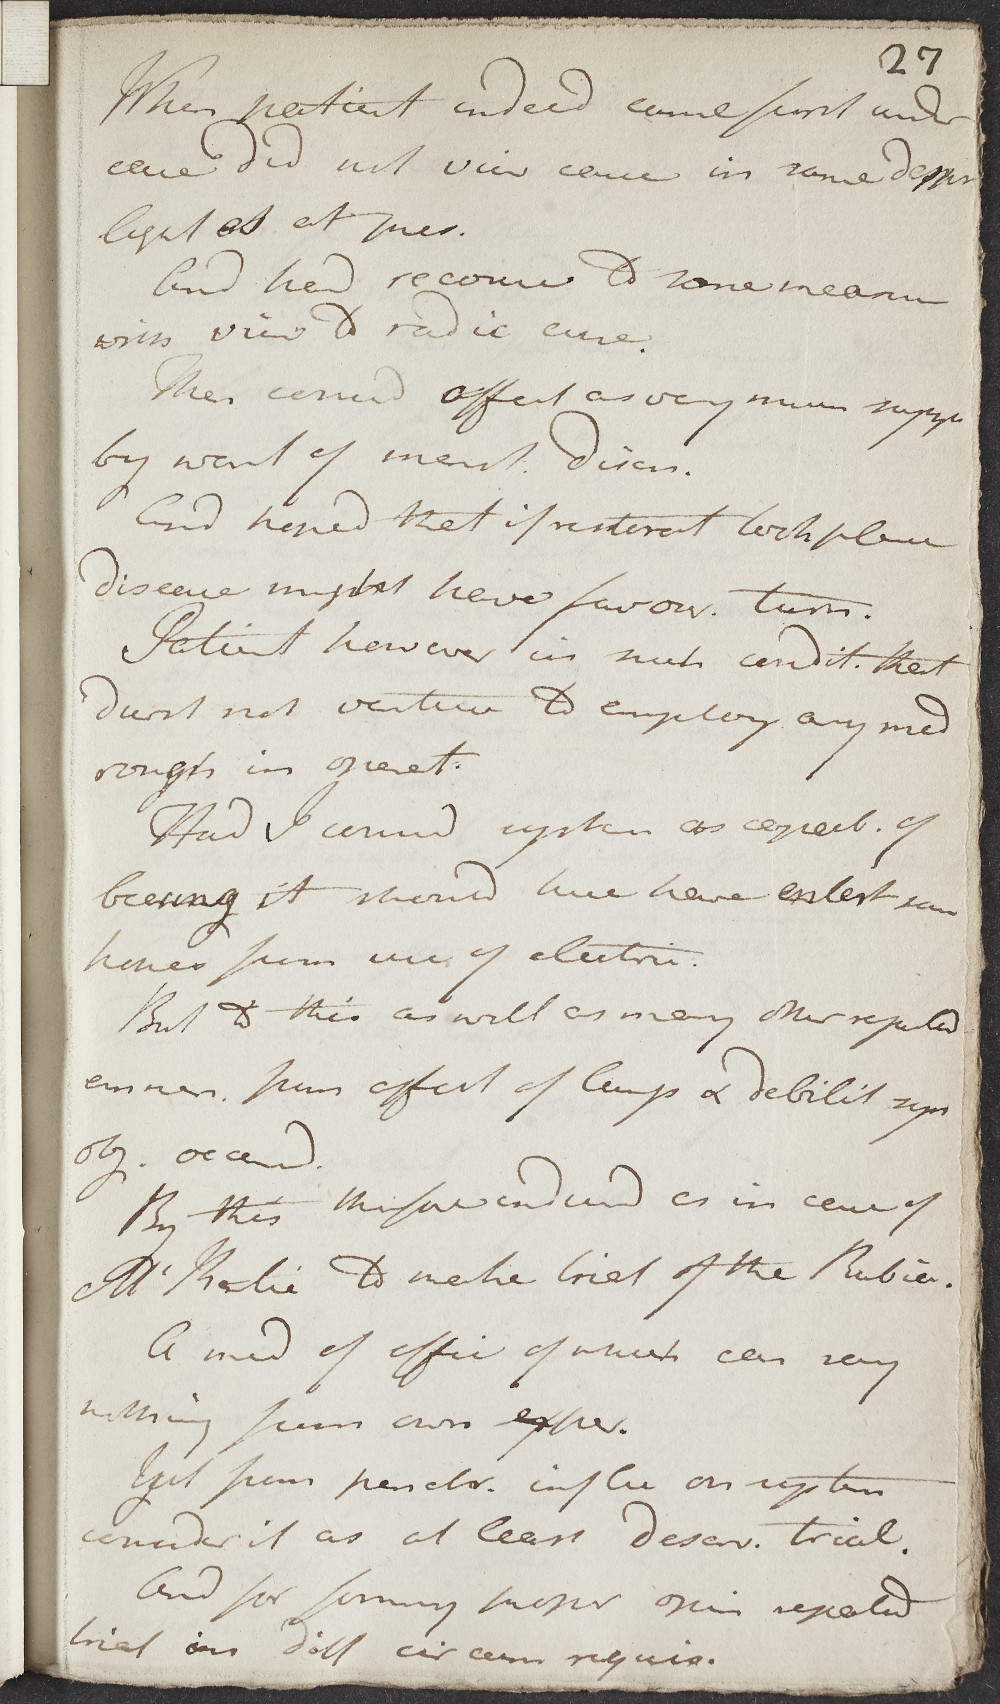 27
When patient indeed came first under
care did not view case in same despr
light as at pres.
And had recourse to some measur
with view to radic cure.
Then consid affect as very much supp
by want of menst. disch.
And hoped that if restorat took place
disease might have favour. turn.
Patient however in such condit. that
durst not venture to employ any med
rough in operat.
Had I consid system as capab. of
bearing it should have entert som
hopes from use of electric.
But to this as well as many other reputed
emmen. from effect of lungs & debilit syst
obj. occurred.
By this therefore induced as in case of
to make trial of the Rubia.
A med of effic of which can say
nothing from own exper.
Yet from pecul. influ on system
consider it as at least deserv. trial.
And for forming proper opin repeated
trial in diff circum requis.